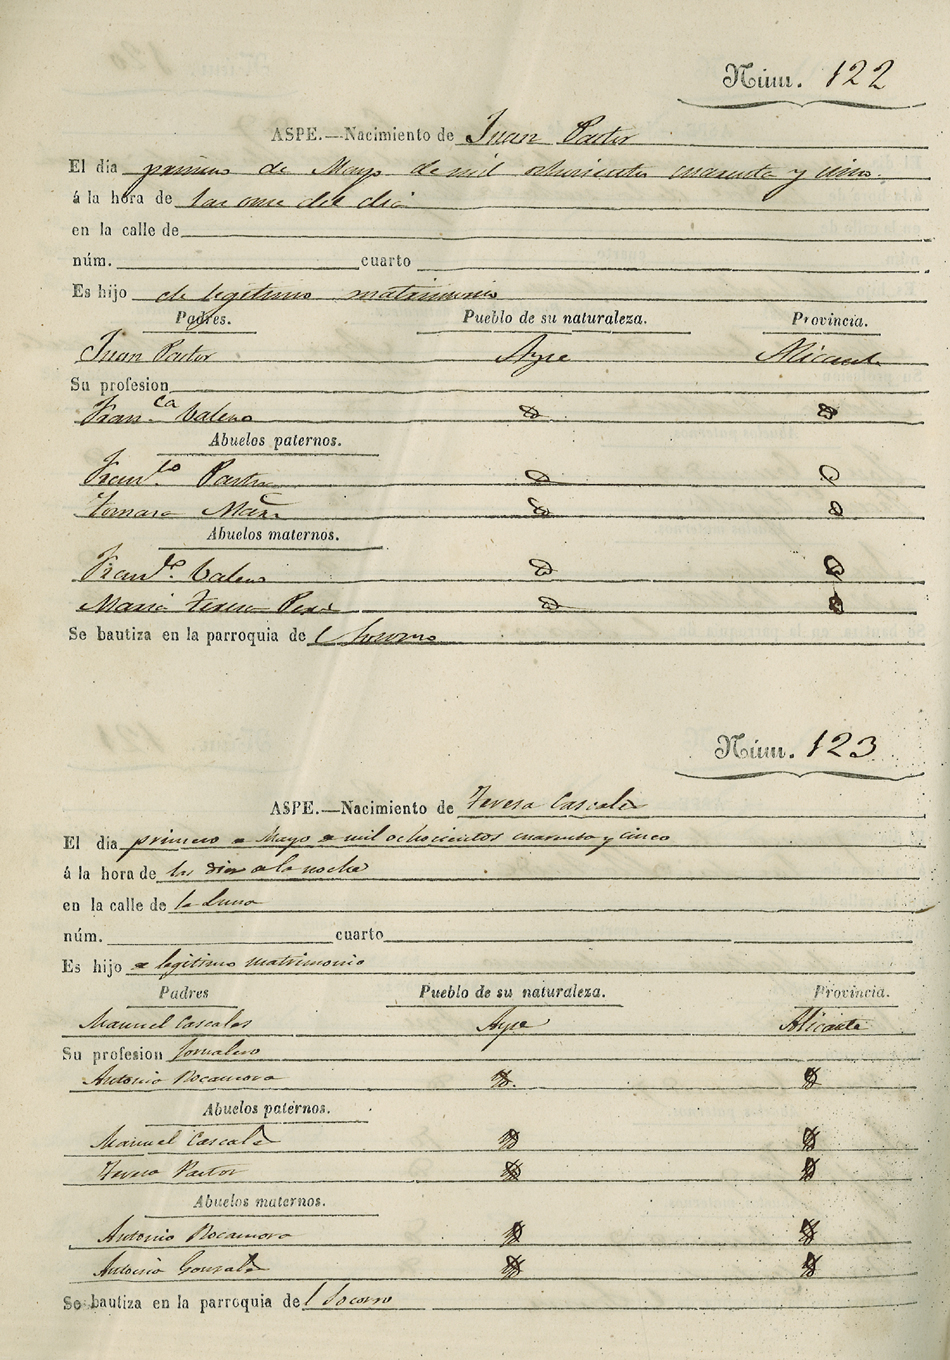 Núm. 122
ASPE.—Nacimiento de Juan Pastor
El dia primero de Mayo de mil ochocientos cuarenta y cinco.
á la hora de las once del dia
en la calle de
núm. cuarto
Es hijo de legitimo matrimonio
Padres. Pueblo de su naturaleza. Provincia.
Juan Pastor Aspe Alicante
Su profesion
Fran.ca Valero
Abuelos paternos.
Fran.co Pastor
Tomasa
Abuelos maternos.
Fran.co Valero
Maria Teresa
Se bautiza en la parroquia de l Socorro
Núm. 123
ASPE.—Nacimiento de Teresa Cascales
El dia primero de Mayo de mil ochocientos cuarenta y cinco
á la hora de las diez de la noche
en la calle de la Luna
núm. cuarto
Es hijo de legitimo matrimonio
Padres Pueblo de su naturaleza. Provincia.
Manuel Cascales Aspe Alicante
Su profesion Jornalero
Antonia Rocamora
Abuelos paternos.
Manuel Cascales
Teresa Pastor
Abuelos maternos.
Antonio Rocamora
Antonia Gonzalez
Se bautiza en la parroquia del Socorro